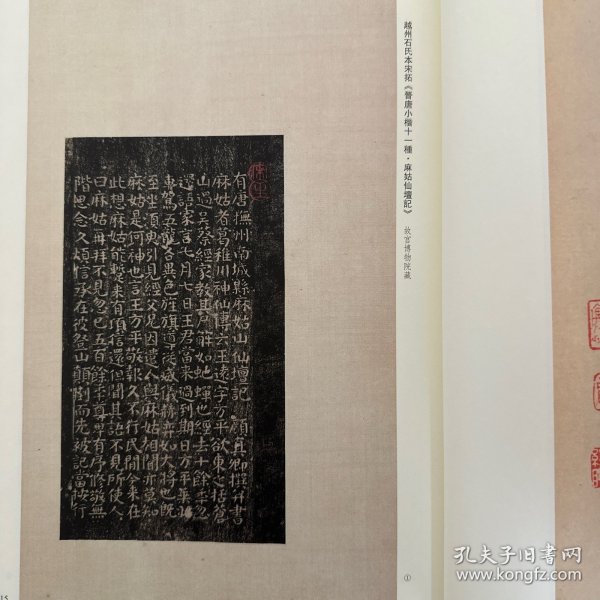 越州石氏本宋拓《晉唐小楷十一種·麻姑仙壇記》 故宮博物院藏
①
有唐撫州南城縣麻姑山仙壇記 顏真卿撰并書
麻姑者葛稚川神仙傳云王遠字方平欲東之括蒼
山過吳蔡經家教其尸解如蛇蟬也經去十餘年忽
還語家言七月七日王君當來過到期日方平乘羽
車駕五龍各異色旌旗導從威儀赫弈如大將也既
至坐須臾引見經父兄因遣人與麻姑相聞亦莫知
麻姑是何神也言王方平敬報久不行民間今來在
此想麻姑能暫來有頃信還但聞其語不見所使人
曰麻姑再拜不見忽已五百餘年尊卑有序修敬無
階思念久煩信承在彼登山顛倒而先被記當按行
15
孔夫子旧书网
www.kongfz.com